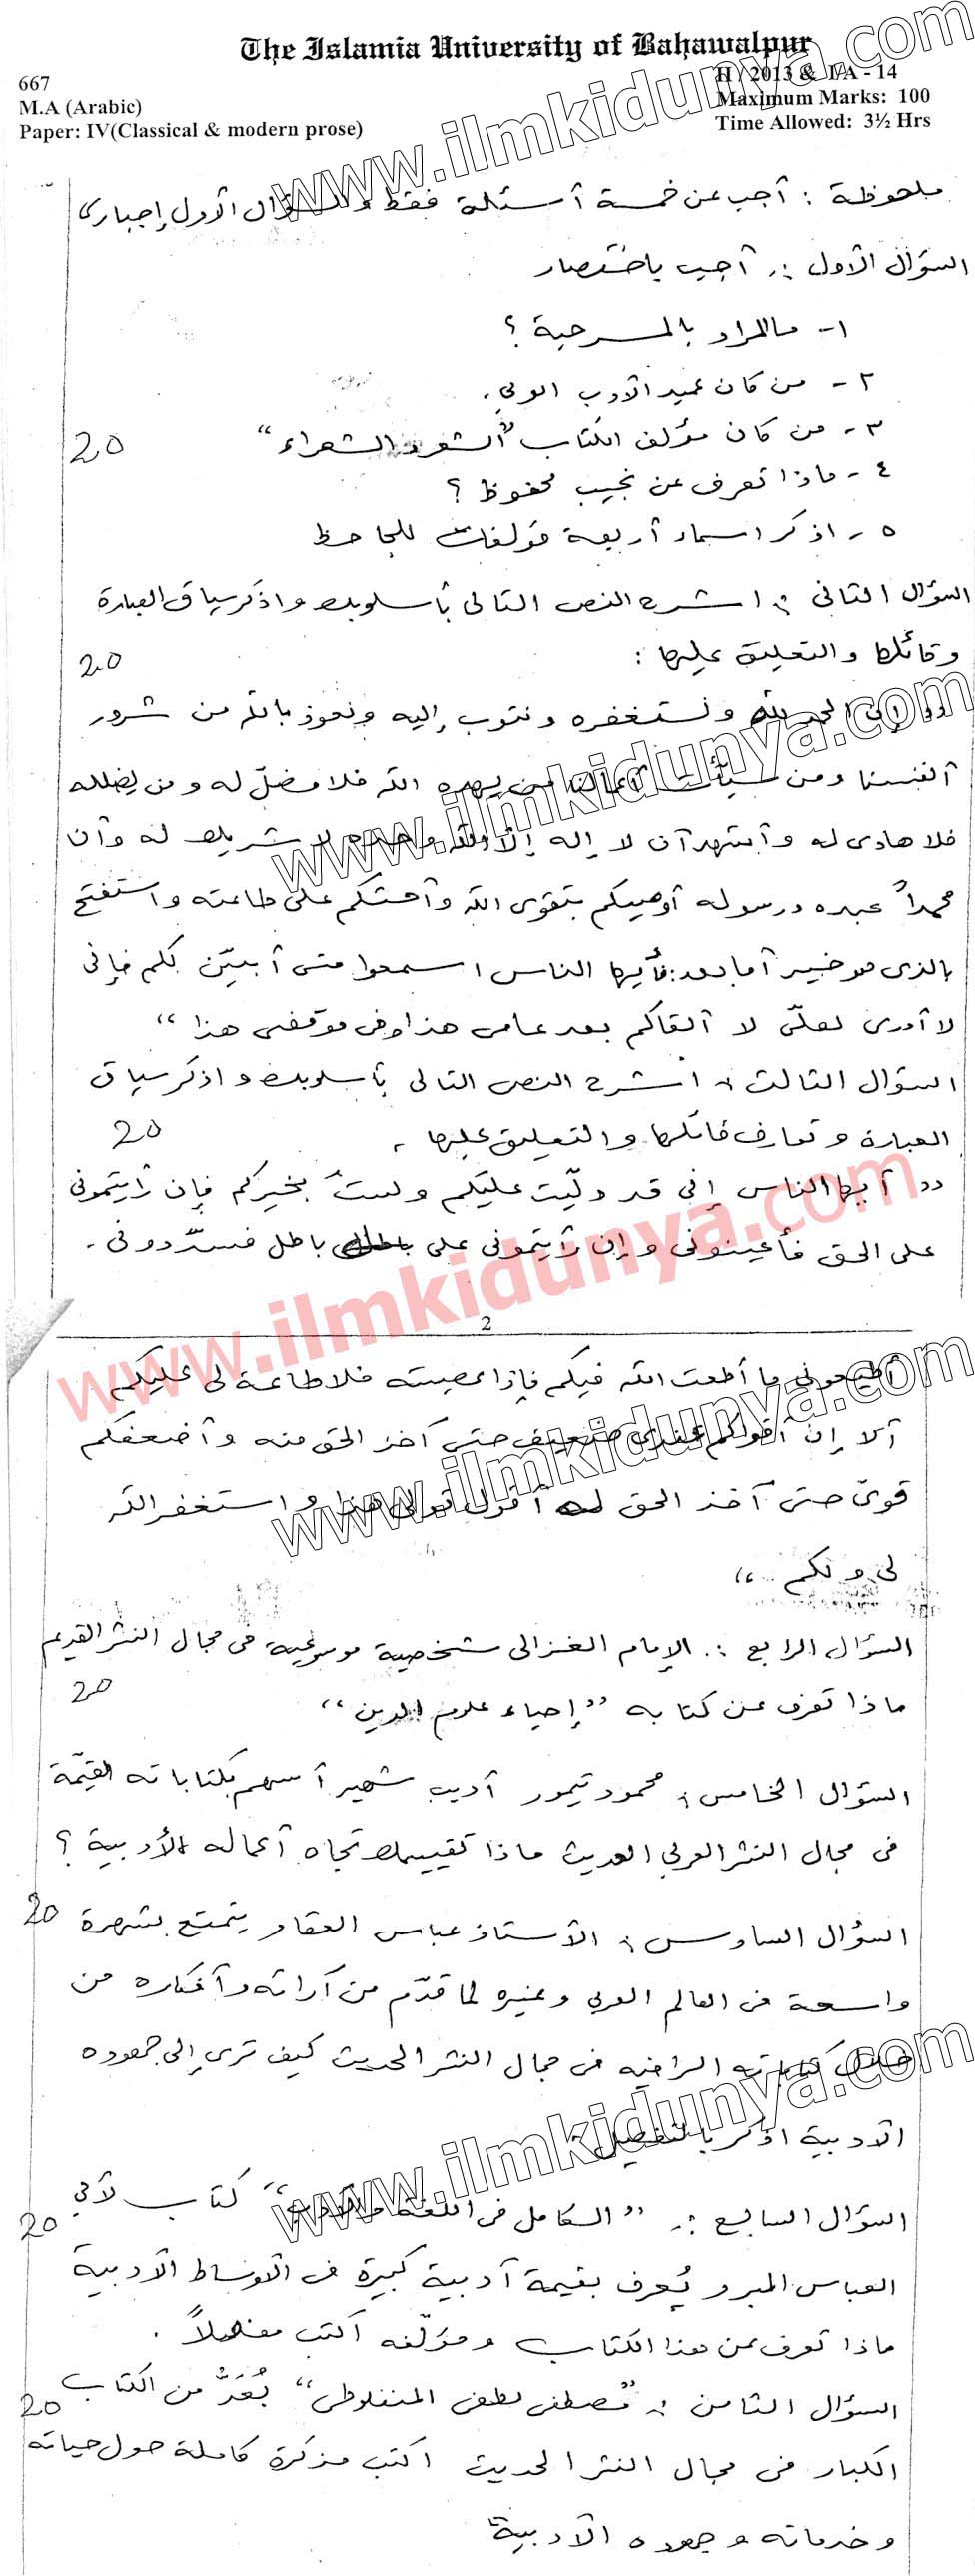 The Islamia University of Bahawalpur
667
II / 2013 & I/A - 14
M.A (Arabic)
Maximum Marks: 100
Paper: IV(Classical & modern prose)
Time Allowed: 3½ Hrs
ملحوظة : أجب عن خمسة أسئلة فقط والسؤال الأول إجباري
السؤال الأول :. أجيب باختصار
١- ماالمراد بالمسرحية ؟
٢- من كان عميد الأدب العربي.
٣- من كان مؤلف الكتاب "الشعر والشعراء"
20
٤- ماذا تعرف عن نجيب محفوظ ؟
٥- اذكر اسماء أربعة مؤلفات للجاحظ
السؤال الثاني :. اشرح النص التالي بأسلوبك واذكر سياق العبارة
وقائلها والتعليق عليها :
20
"إن الحمد لله ونستغفره ونتوب إليه ونعوذ بالله من شرور
أنفسنا ومن سيئات أعمالنا من يهده الله فلا مضلّ له ومن يضلله
فلا هادي له وأشهد أن لا إله إلا الله وحده لا شريك له وأن
محمداً عبده ورسوله أوصيكم بتقوى الله وأحثكم على طاعته واستفتح
بالذي هو خير أما بعد: فأيها الناس اسمعوا مني أبيّن لكم فإني
لا أدري لعلّي لا ألقاكم بعد عامي هذا وفي موقفي هذا"
السؤال الثالث :. اشرح النص التالي بأسلوبك واذكر سياق
العبارة وتعارف قائلها والتعليق عليها .
20
"أيها الناس إني قد ولّيت عليكم ولستُ بخيركم فإن رأيتموني
على الحق فأعينوني وإن رأيتموني على باطل فسدّدوني .
2
أطيعوني ما أطعت الله فيكم فإذا عصيته فلا طاعة لي عليكم
ألا إن أقواكم عندي ضعيف حتى آخذ الحق منه وأضعفكم
قويّ حتى آخذ الحق له أقول قولي هذا واستغفر الله
لي ولكم"
السؤال الرابع :. الإمام الغزالي شخصية موسوعية في مجال النثر القديم
20
ماذا تعرف عن كتابه "إحياء علوم الدين"
السؤال الخامس :. محمود تيمور أديب شهير أسهم بكتاباته القيّمة
في مجال النثر العربي الحديث ماذا تقييمك تجاه أعماله الأدبية ؟
20
السؤال السادس :. الأستاذ عباس العقاد يتمتع بشهرة
واسعة في العالم العربي وغيره لما قدّم من آرائه وأفكاره من
خلال كتاباته في مجال النثر الحديث كيف ترى إلى جهوده
الأدبية اذكر بالتفصيل
السؤال السابع :. "الكامل في اللغة والأدب" كتاب لأبي
20
العباس المبرد يُعرف بقيمة أدبية كبيرة في الأوساط الأدبية
ماذا تعرف عن هذا الكتاب ومؤلّفه اكتب مفصلاً .
السؤال الثامن :. "مصطفى لطفي المنفلوطي" يُعَدُّ من الكتاب
20
الكبار في مجال النثر الحديث اكتب مذكرة كاملة حول حياته
وخدماته وجهوده الأدبية
www.ilmkidunya.com
www.ilmkidunya.com
www.ilmkidunya.com
www.ilmkidunya.com
www.ilmkidunya.com